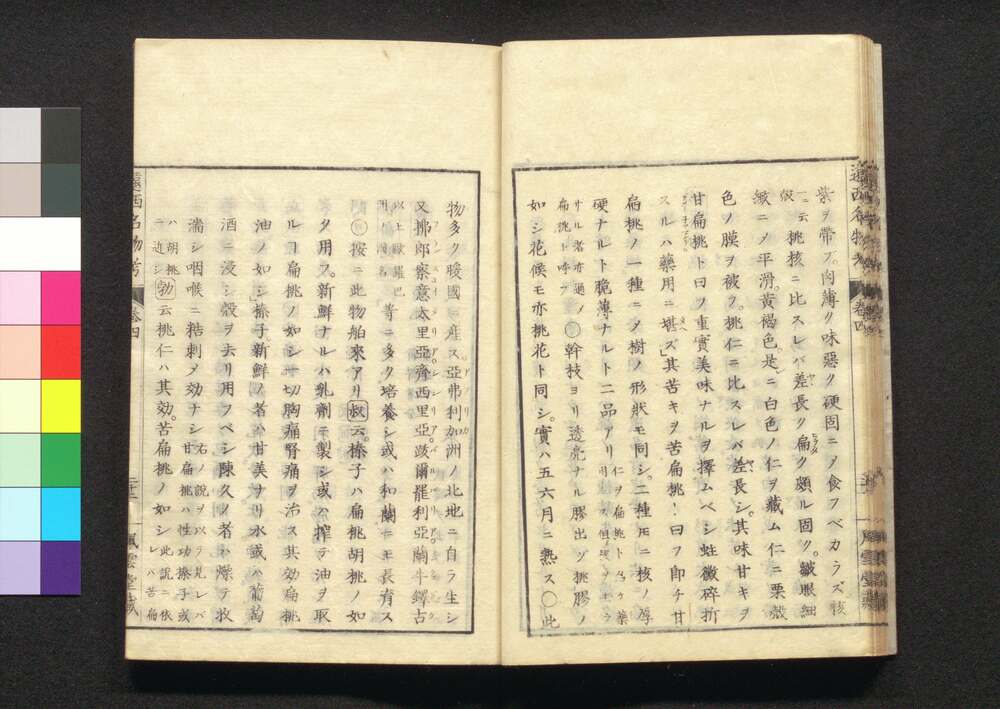 紫ヲ帶フ。肉薄ク味惡ク硬固ニメ食フベカラズ核
一ニ云桃核ニ比スレバ差長ク扁ク頗ル固ク。皺眼細
殻
緻ニメ平滑。黃褐色。是ニ白色ノ仁ヲ藏ム仁ニ栗殻
色ノ膜ヲ被フ。桃仁ニ比スレバ差長シ。其味甘キヲ
甘扁桃ト曰フ重實美味ナルヲ擇ムベシ蛀黴碎折
スルハ藥用ニ堪ズ其苦キヲ苦扁桃ト曰フ即チ甘
扁桃ノ一種ニメ樹ノ形狀モ同シ。二種モニ核ノ厚
硬ナルト脆薄ナルト二品アリ
サル者亦通メ
扁桃ト呼フ
○幹枝ヨリ透亮ナル膠出ヅ桃膠ノ
如シ花候モ亦桃花ト同シ。實ハ五六月ニ熟ス○此
遠西名物考
卷四
風雲堂藏
物多ク暖國ニ產ス亞弗利加洲ノ北地ニ自ラ生シ
又拂郎察意太里亞齊西里亞。
以上歐羅巴
洲ノ國名
等ニ多ク培養シ或ハ和蘭ニモ長育ス
按ニ此物舶來アリ 叔云。搽子ハ扁桃胡桃ノ如
クタ用フ。新鮮ナルハ乳劑ニ製シ或ハ搾テ油ヲ取
ルコ扁桃ノ如シ一切胸痛腎痛ヲ治ス其効扁桃
油ノ如シ 搽子新鮮ノ者ハ甘美ナリ水或ハ葡萄
酒ニ浸シ殻ヲ去リ用フベシ陳久ノ者ハ燥テ枚
濇シ咽喉ニ粘刺メ効ナシ
右ノ說ヲ以テ見レバ
甘扁桃ハ性功搽子或
ハ胡桃
ニ近シ
勃云桃仁ハ其効。苦扁桃ノ如シ
此說ニ依
レバ苦扁
遠西名物考
卷四
風雲堂藏